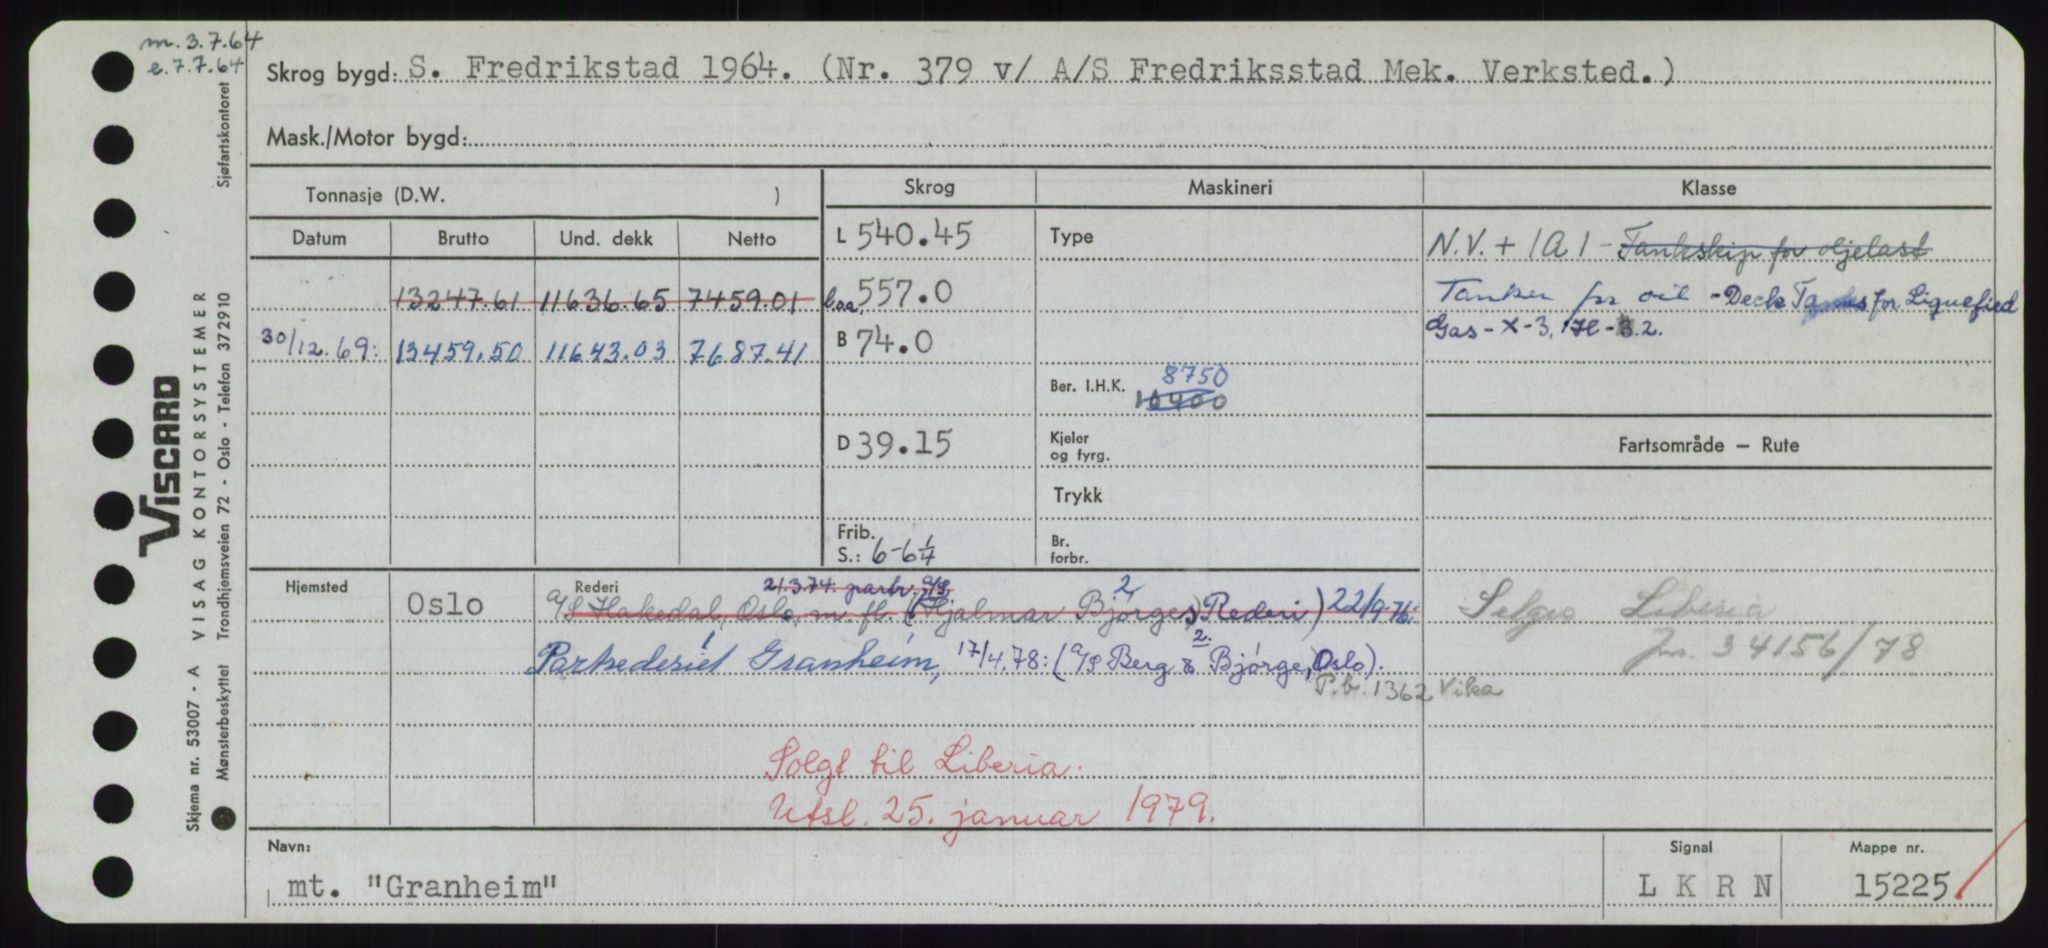 m. 3.7.64
e. 7.7.64
Skrog bygd: S. Fredrikstad 1964. (Nr. 379 v/ A/S Fredriksstad Mek. Verksted.)
Mask./Motor bygd:
Tonnasje (D.W. )
Skrog Maskineri Klasse
Datum Brutto Und. dekk Netto
L 540.45 Type N.V. + 1A1 - Tankskip for oljelast
13247.61 11636.65 7459.01 Loa 557.0 Tanker for oil - Deck Tanks for Liquefied
Gas - X - 3.
30/12.69: 13459.50 11643.03 7687.41 B 74.0
Ber. I.H.K. 8750
10400
D 39.15 Kjeler
og fyrg.
Fartsområde – Rute
Trykk
Frib.
S.: 6-6¼
Br.
forbr.
Hjemsted Rederi 21.3.74. partr. A/S 2
Oslo A/S Hakedal, Oslo, m. fl. (Hjalmar Bjørges Rederi) 22/9-76:
Selges Liberia
Partrederiet Granheim, 17/4.78: (A/S Berg & Bjørge, Oslo).
2.
Jnr. 34156/78
P.b. 1362 Vika
Solgt til Liberia.
Utsl. 25. januar 1979.
Navn: Signal Mappe nr.
mt. "Granheim" L K R N 15225
VISCARD
Skjema nr. 53007 - A VISAG KONTORSYSTEMER
Mønsterbeskyttet Trondhjemsveien 72 - Oslo - Telefon 372910 Sjøfartskontoret